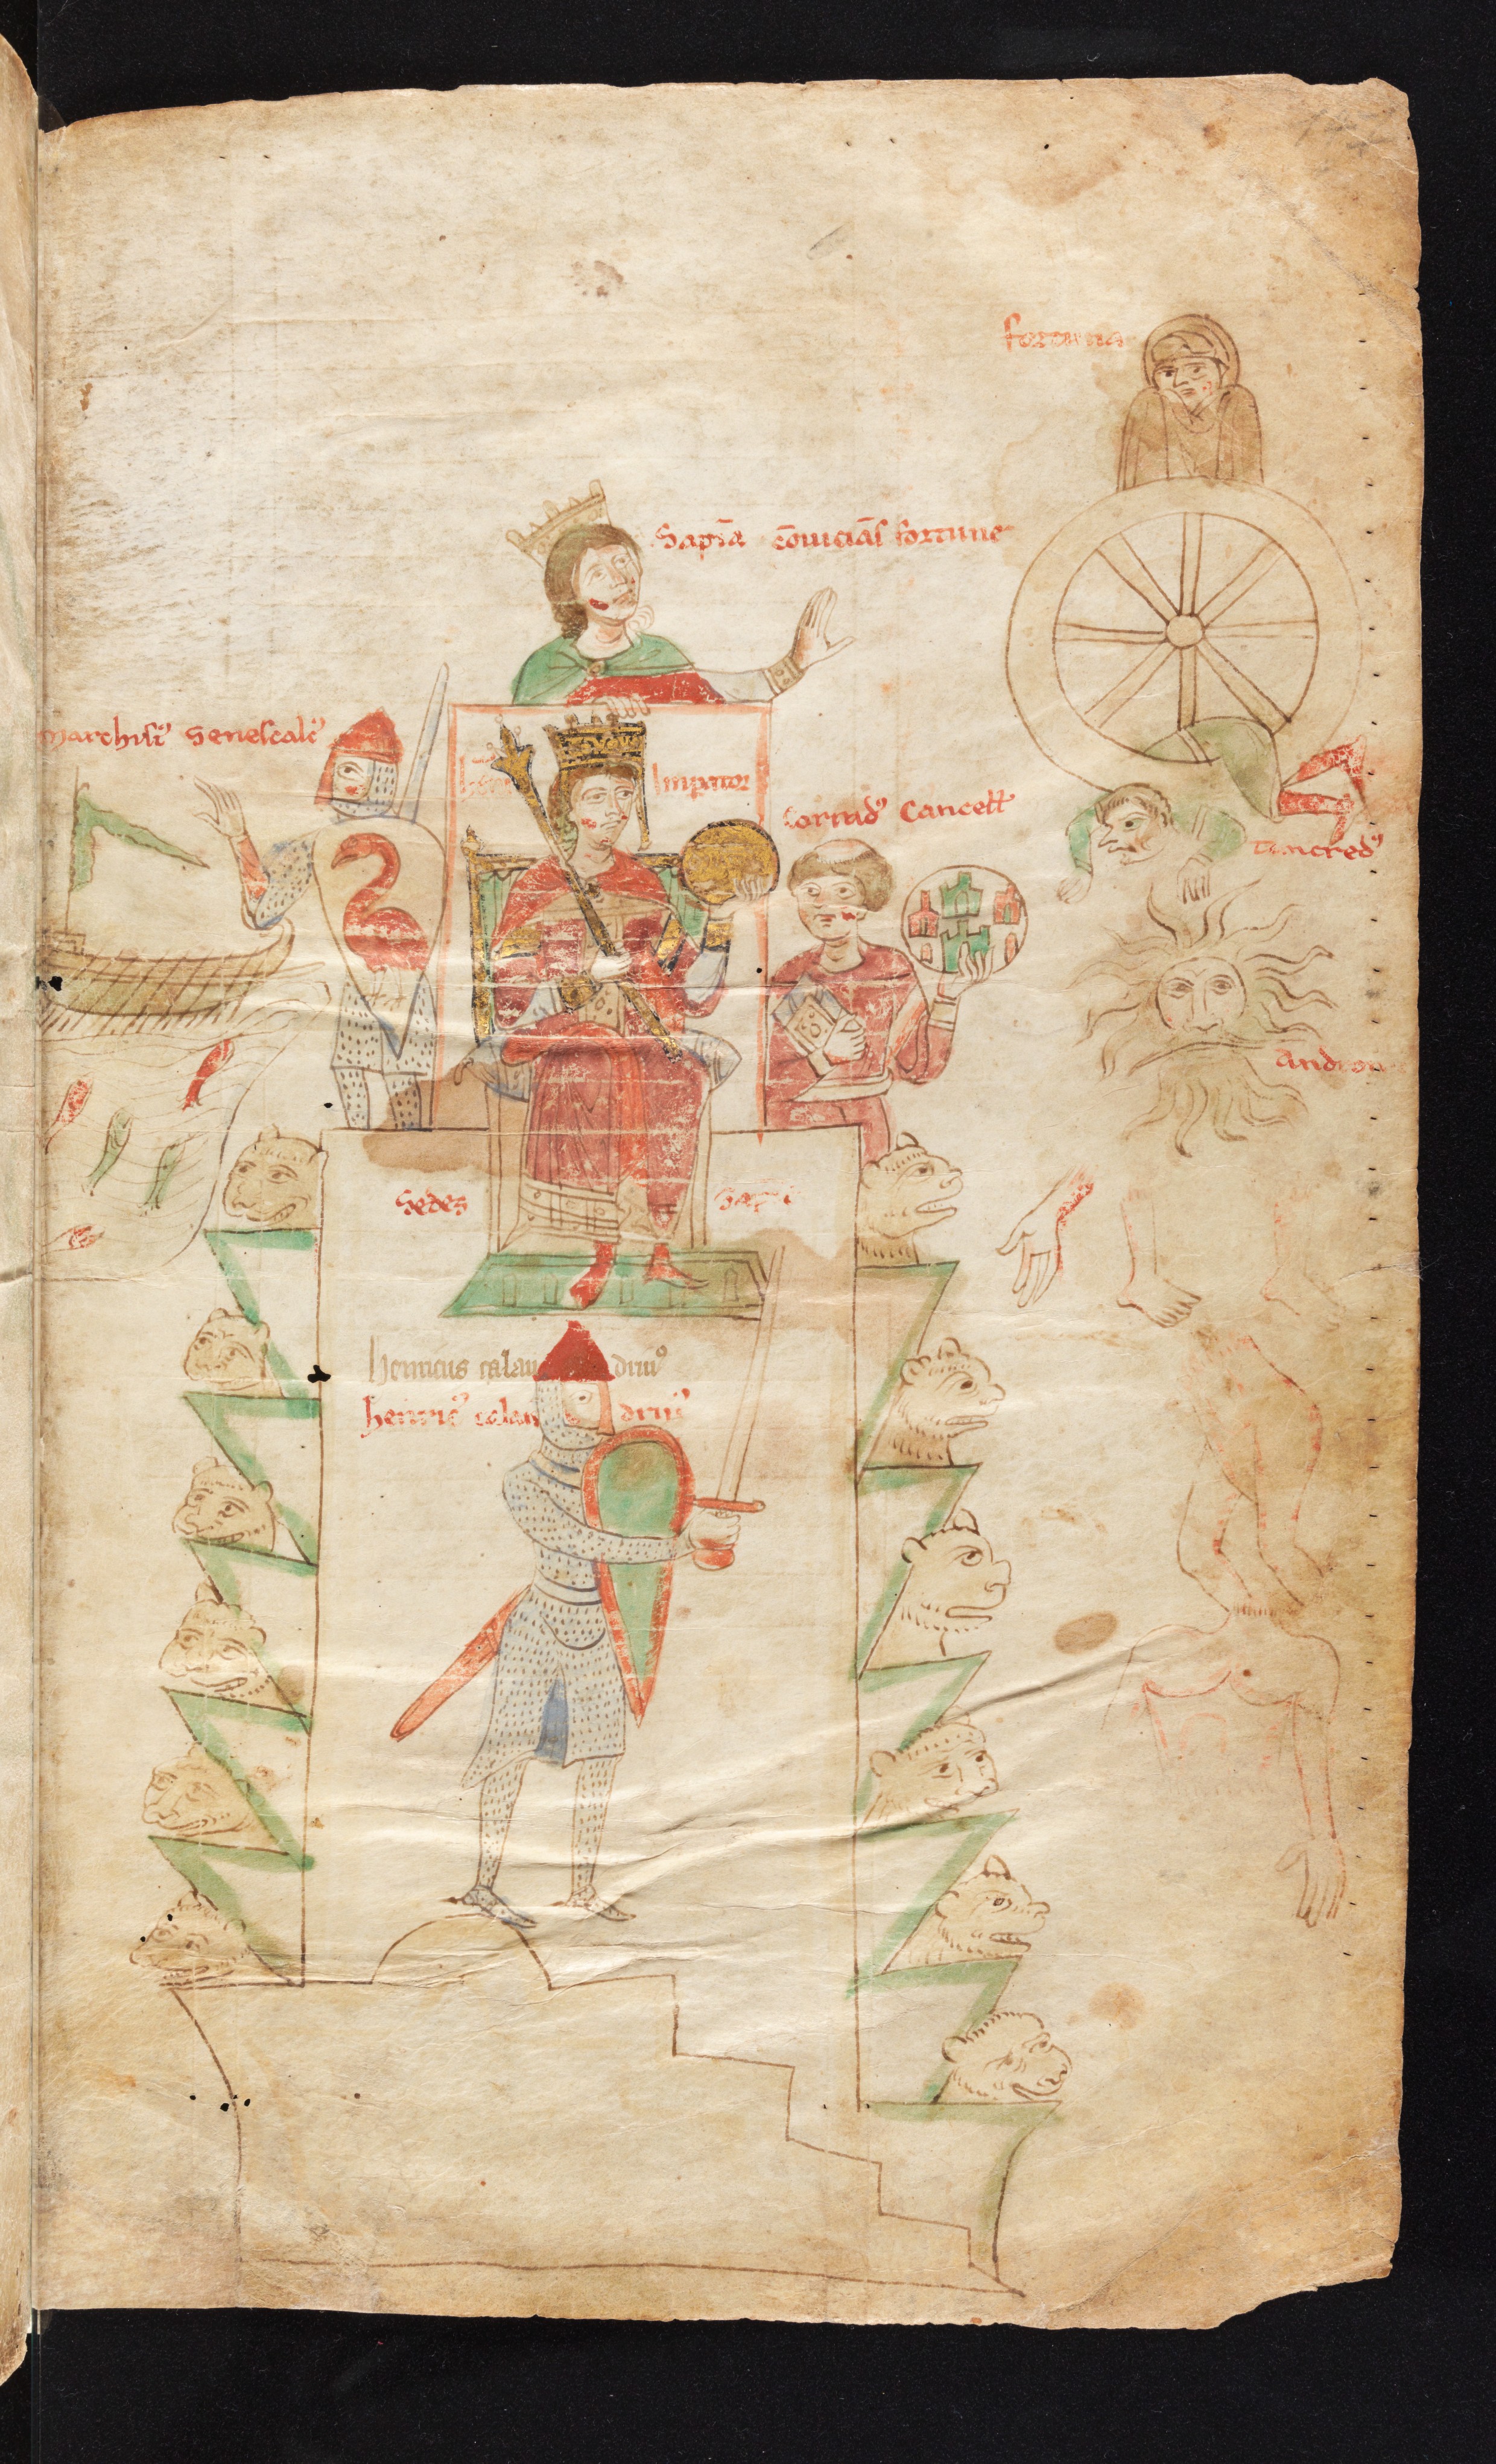 fortuna
Sapīa cōuiciās fortune
marchisi⁹ Senescalc⁹
Imperator
Corrad⁹ Cancell
Tancred⁹
Andron
Sedes Sapī
henricus calan drin⁹
henric⁹ calan drin⁹